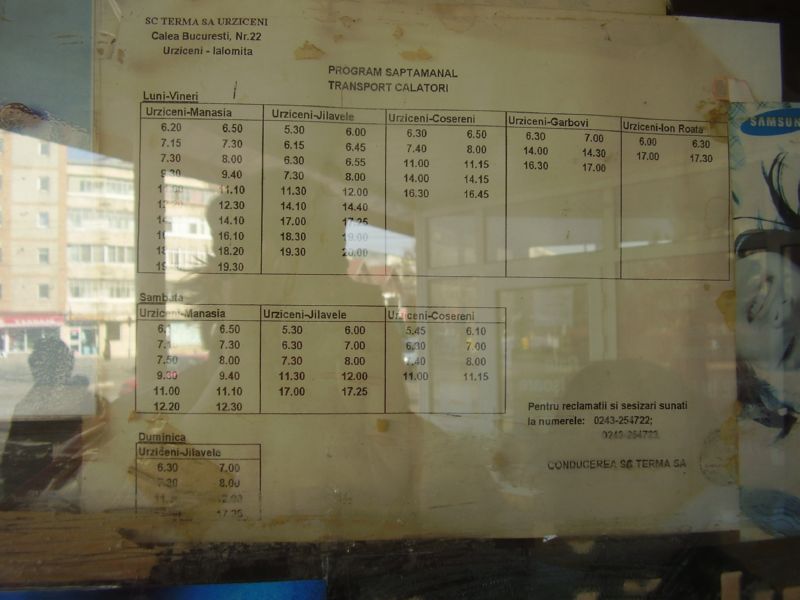 SC TERMA SA URZICENI
Calea Bucuresti, Nr.22
Urziceni - Ialomita
PROGRAM SAPTAMANAL
TRANSPORT CALATORI
Luni-Vineri
Urziceni-Manasia Urziceni-Jilavele Urziceni-Cosereni Urziceni-Garbovi Urziceni-Ion Roata
6.20 6.50 5.30 6.00 6.30 6.50 6.30 7.00 6.00 6.30
7.15 7.30 6.15 6.45 7.40 8.00 14.00 14.30 17.00 17.30
7.30 8.00 6.30 6.55 11.00 11.15 16.30 17.00
9.30 9.40 7.30 8.00 14.00 14.15
11.10 11.30 12.00 16.30 16.45
12.30 14.10 14.40
14.10 17.00 17.25
16.10 18.30 19.00
18.20 19.30 20.00
19.30
Sambata
Urziceni-Manasia Urziceni-Jilavele Urziceni-Cosereni
6.50 5.30 6.00 5.45 6.10
7.30 6.30 7.00 6.30 7.00
7.50 8.00 7.30 8.00 7.40 8.00
9.30 9.40 11.30 12.00 11.00 11.15
11.00 11.10 17.00 17.25
12.20 12.30
Duminica
Urziceni-Jilavele
6.30 7.00
7.30 8.00
12.00
17.25
Pentru reclamatii si sesizari sunati
la numerele: 0243-254722;
0243-254723
CONDUCEREA SC TERMA SA
SAMSUN